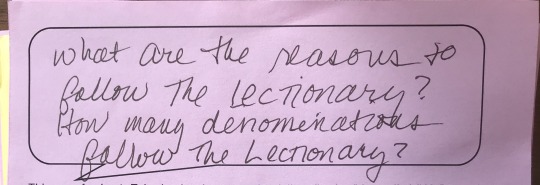 what are the reasons to
follow The Lectionary?
How many denominations
follow The Lectionary?